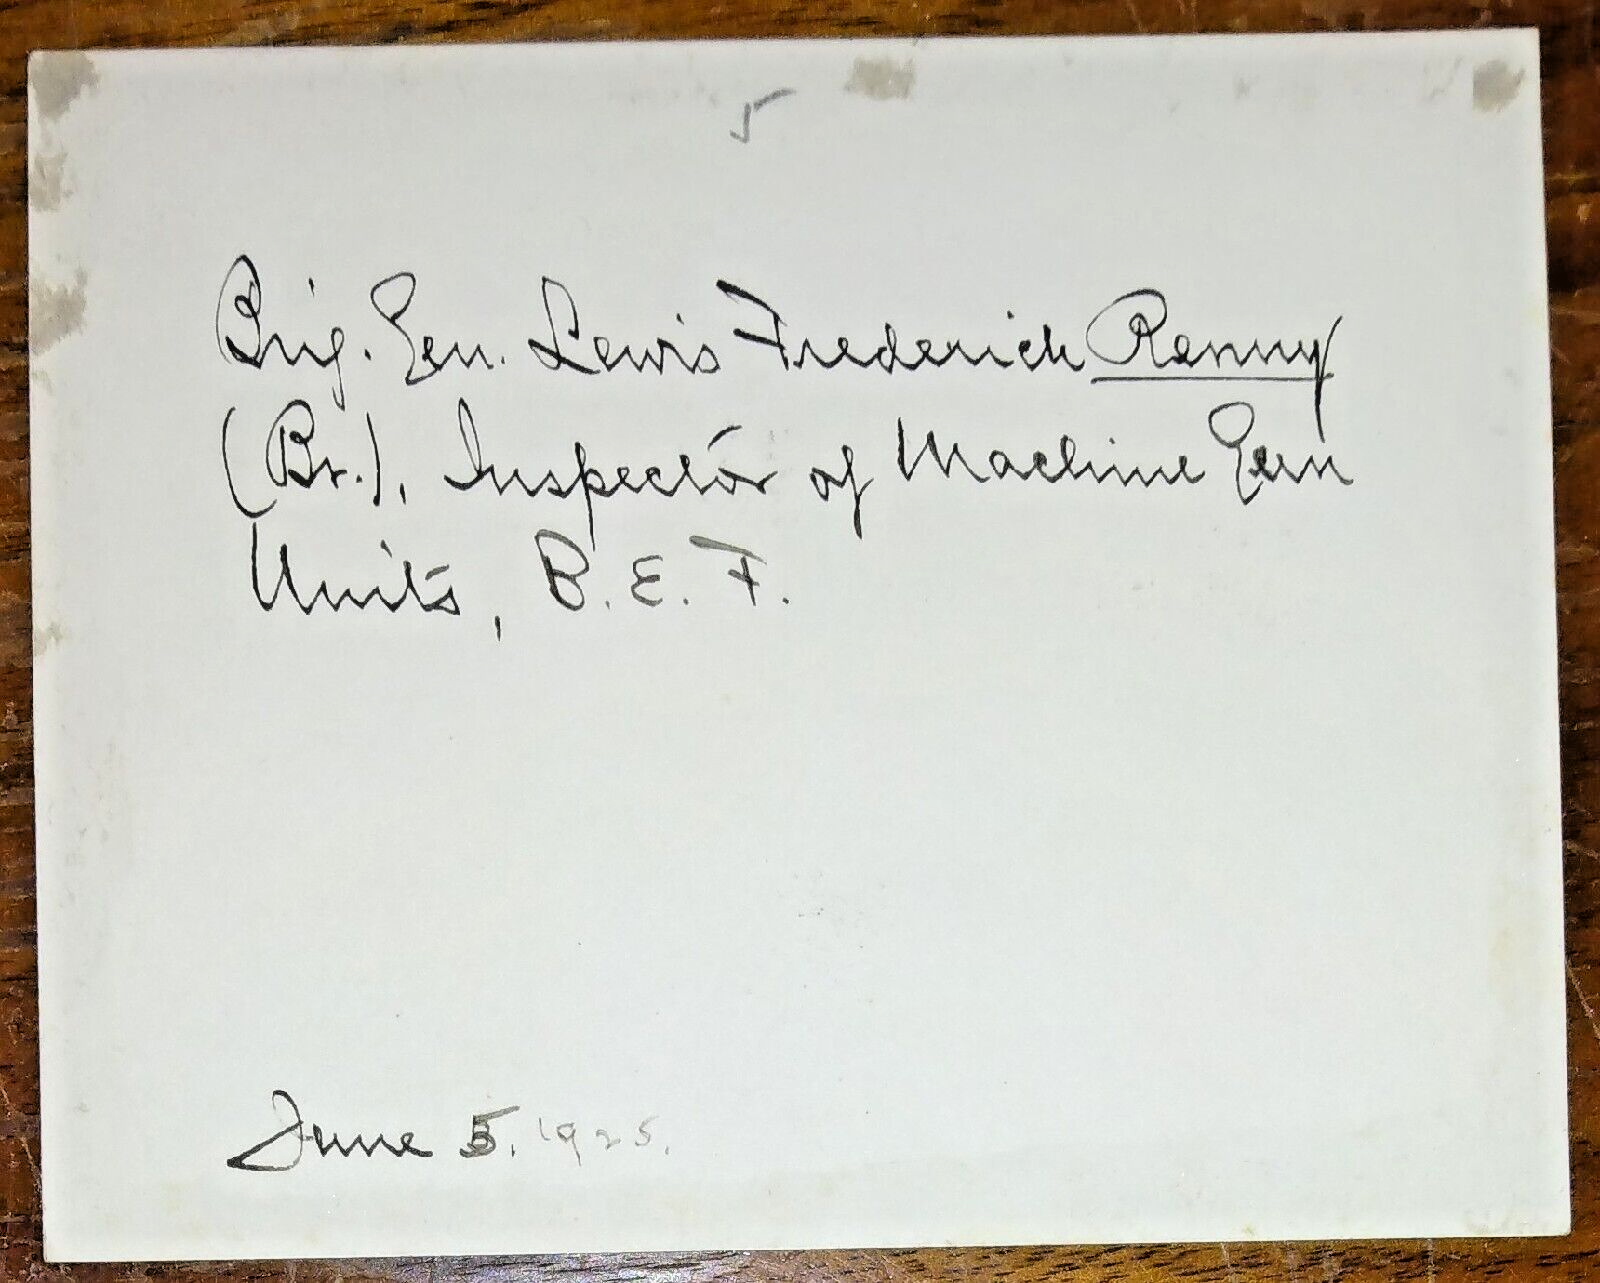 5
Brig. Gen. Lewis Frederick Renny
(Br.), Inspector of Machine Gun
Units, B. E. F.
June 5. 1925.